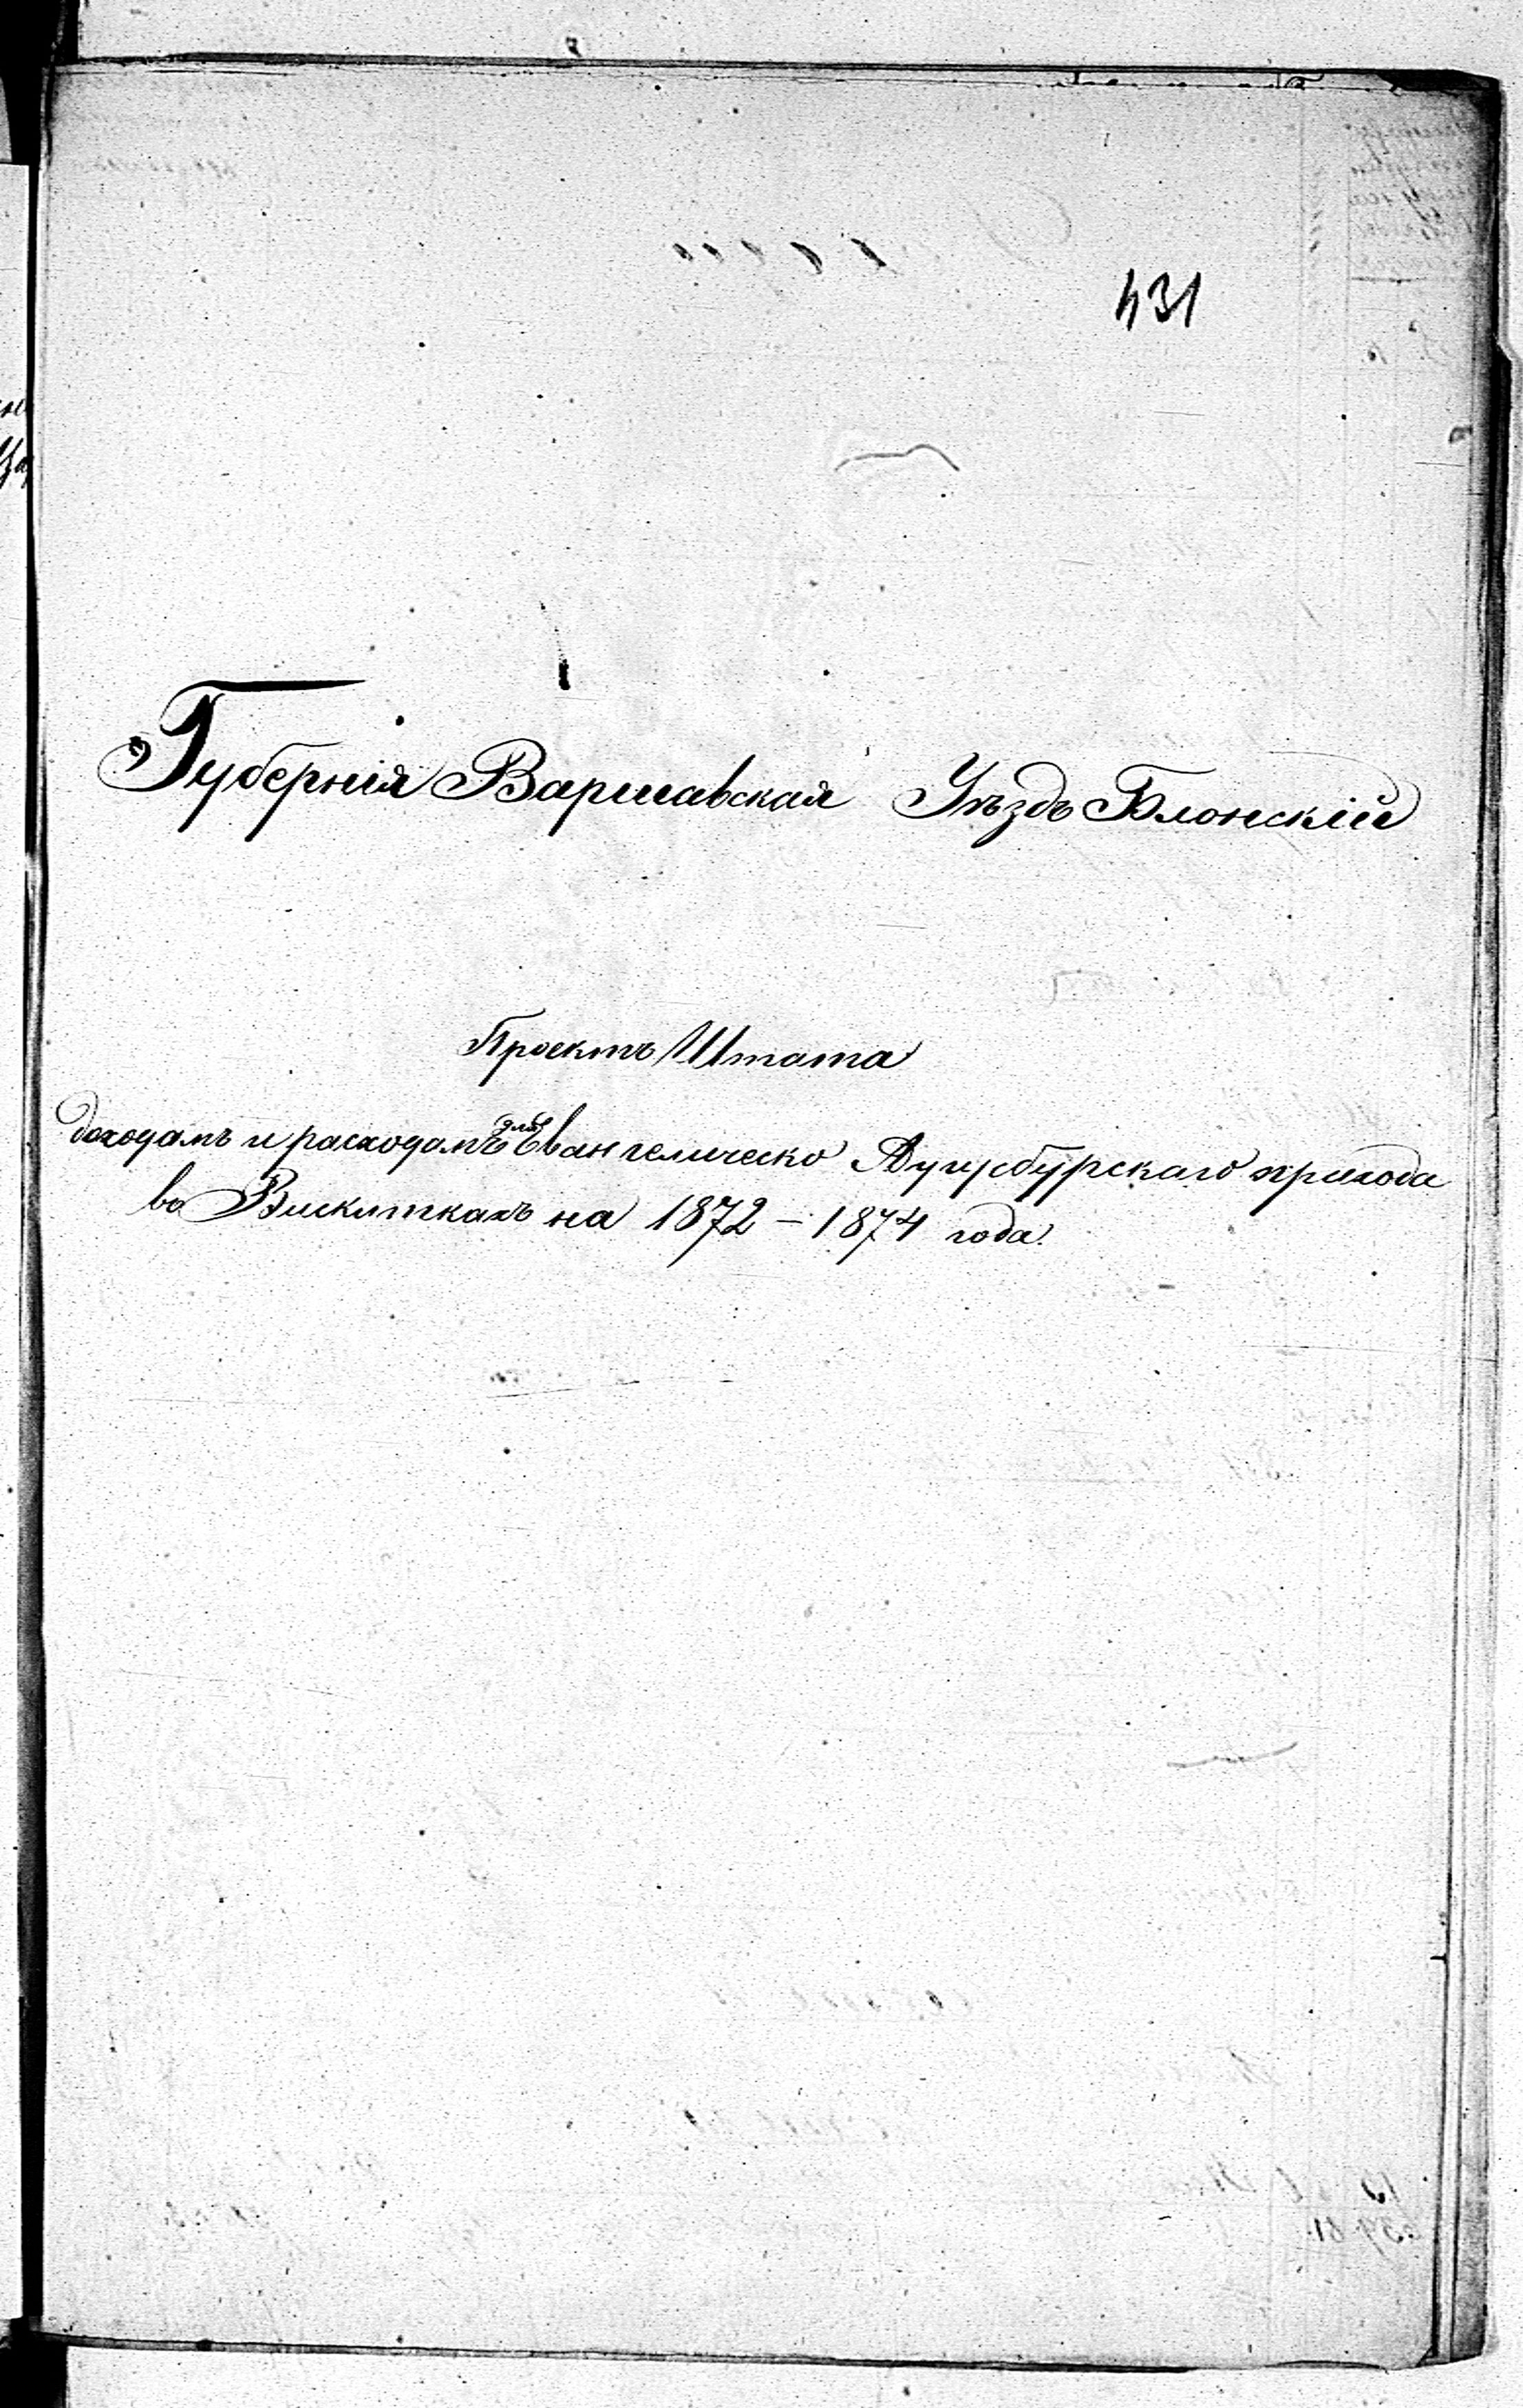 431
Губернія Варшавская Уѣздъ Блонскій
Проектъ Штата
доходамъ и расходамъ для Евангелическо Аугусбурскаго прихода
въ Вискиткахъ на 1872 – 1874 года.